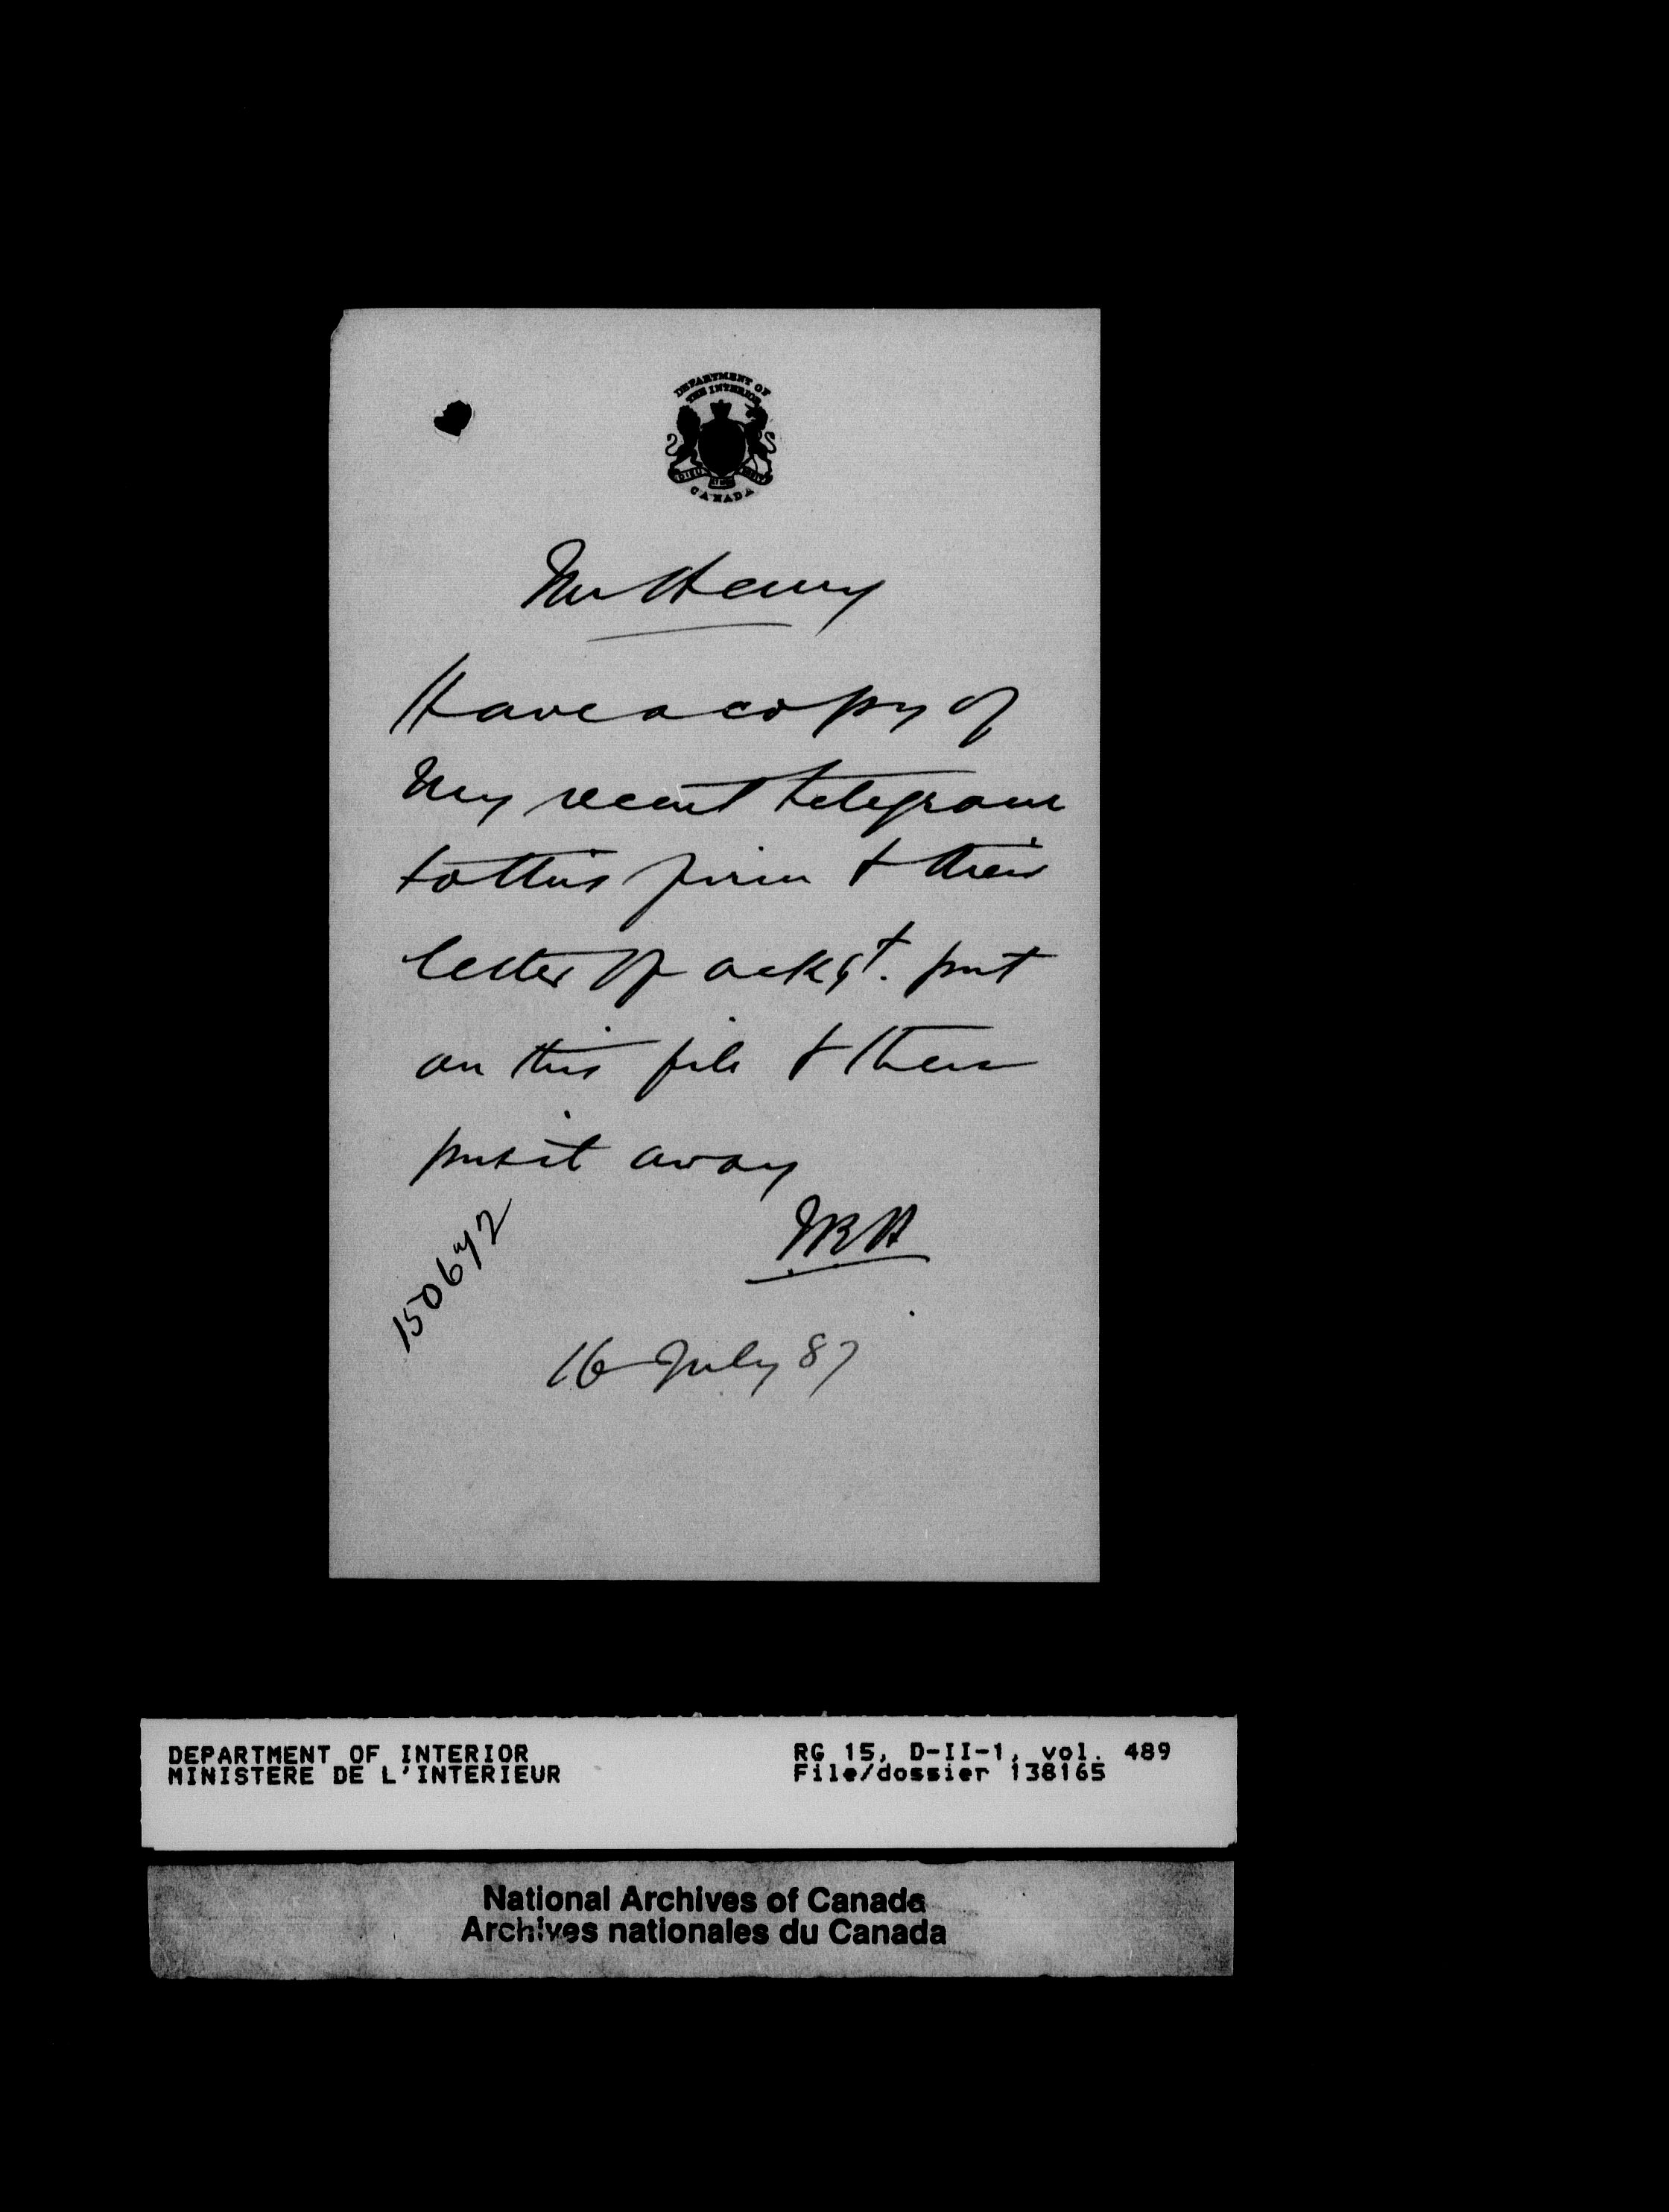 DEPARTMENT OF
THE INTERIOR
DIEU ET MON DROIT
CANADA
Mr Henry
Have a copy of
my recent telegram
to this firm & their
letter of ackgt. put
on this file & then
put it away
150672
16 July 87
DEPARTMENT OF INTERIOR
MINISTERE DE L'INTERIEUR
RG 15, D-II-1, vol. 489
File/dossier 138165
National Archives of Canada
Archives nationales du Canada